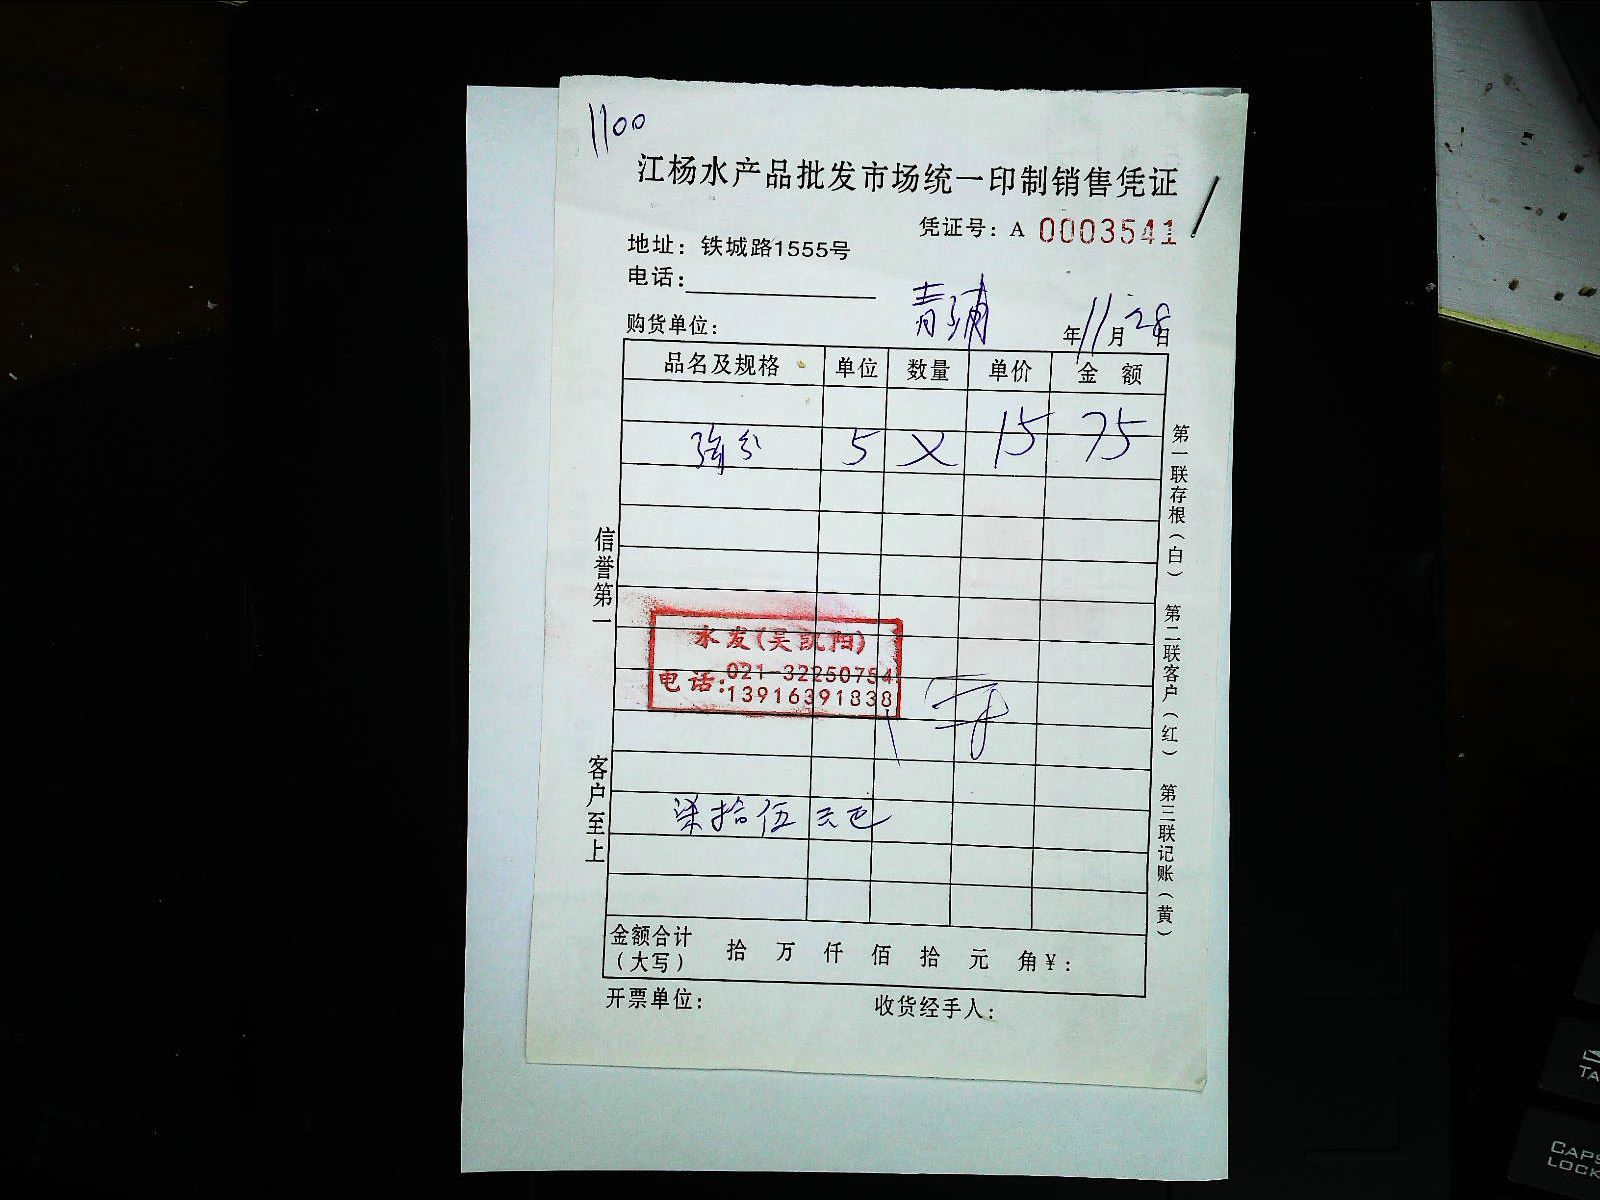 1100
江杨水产品批发市场统一印制销售凭证
凭证号：A 0003541
地址：铁城路1555号
电话：
购货单位： 青浦 年11月28日
品名及规格 单位 数量 单价 金 额
5 × 15 75
信誉第一
客户至上
永发(吴凯阳)
电话：021-32250754
13916391838
柒拾伍元
金额合计 拾 万 仟 佰 拾 元 角¥：
（大写）
开票单位： 收货经手人：
第一联存根（白） 第二联客户（红） 第三联记账（黄）
TA
CAPS
LOCK